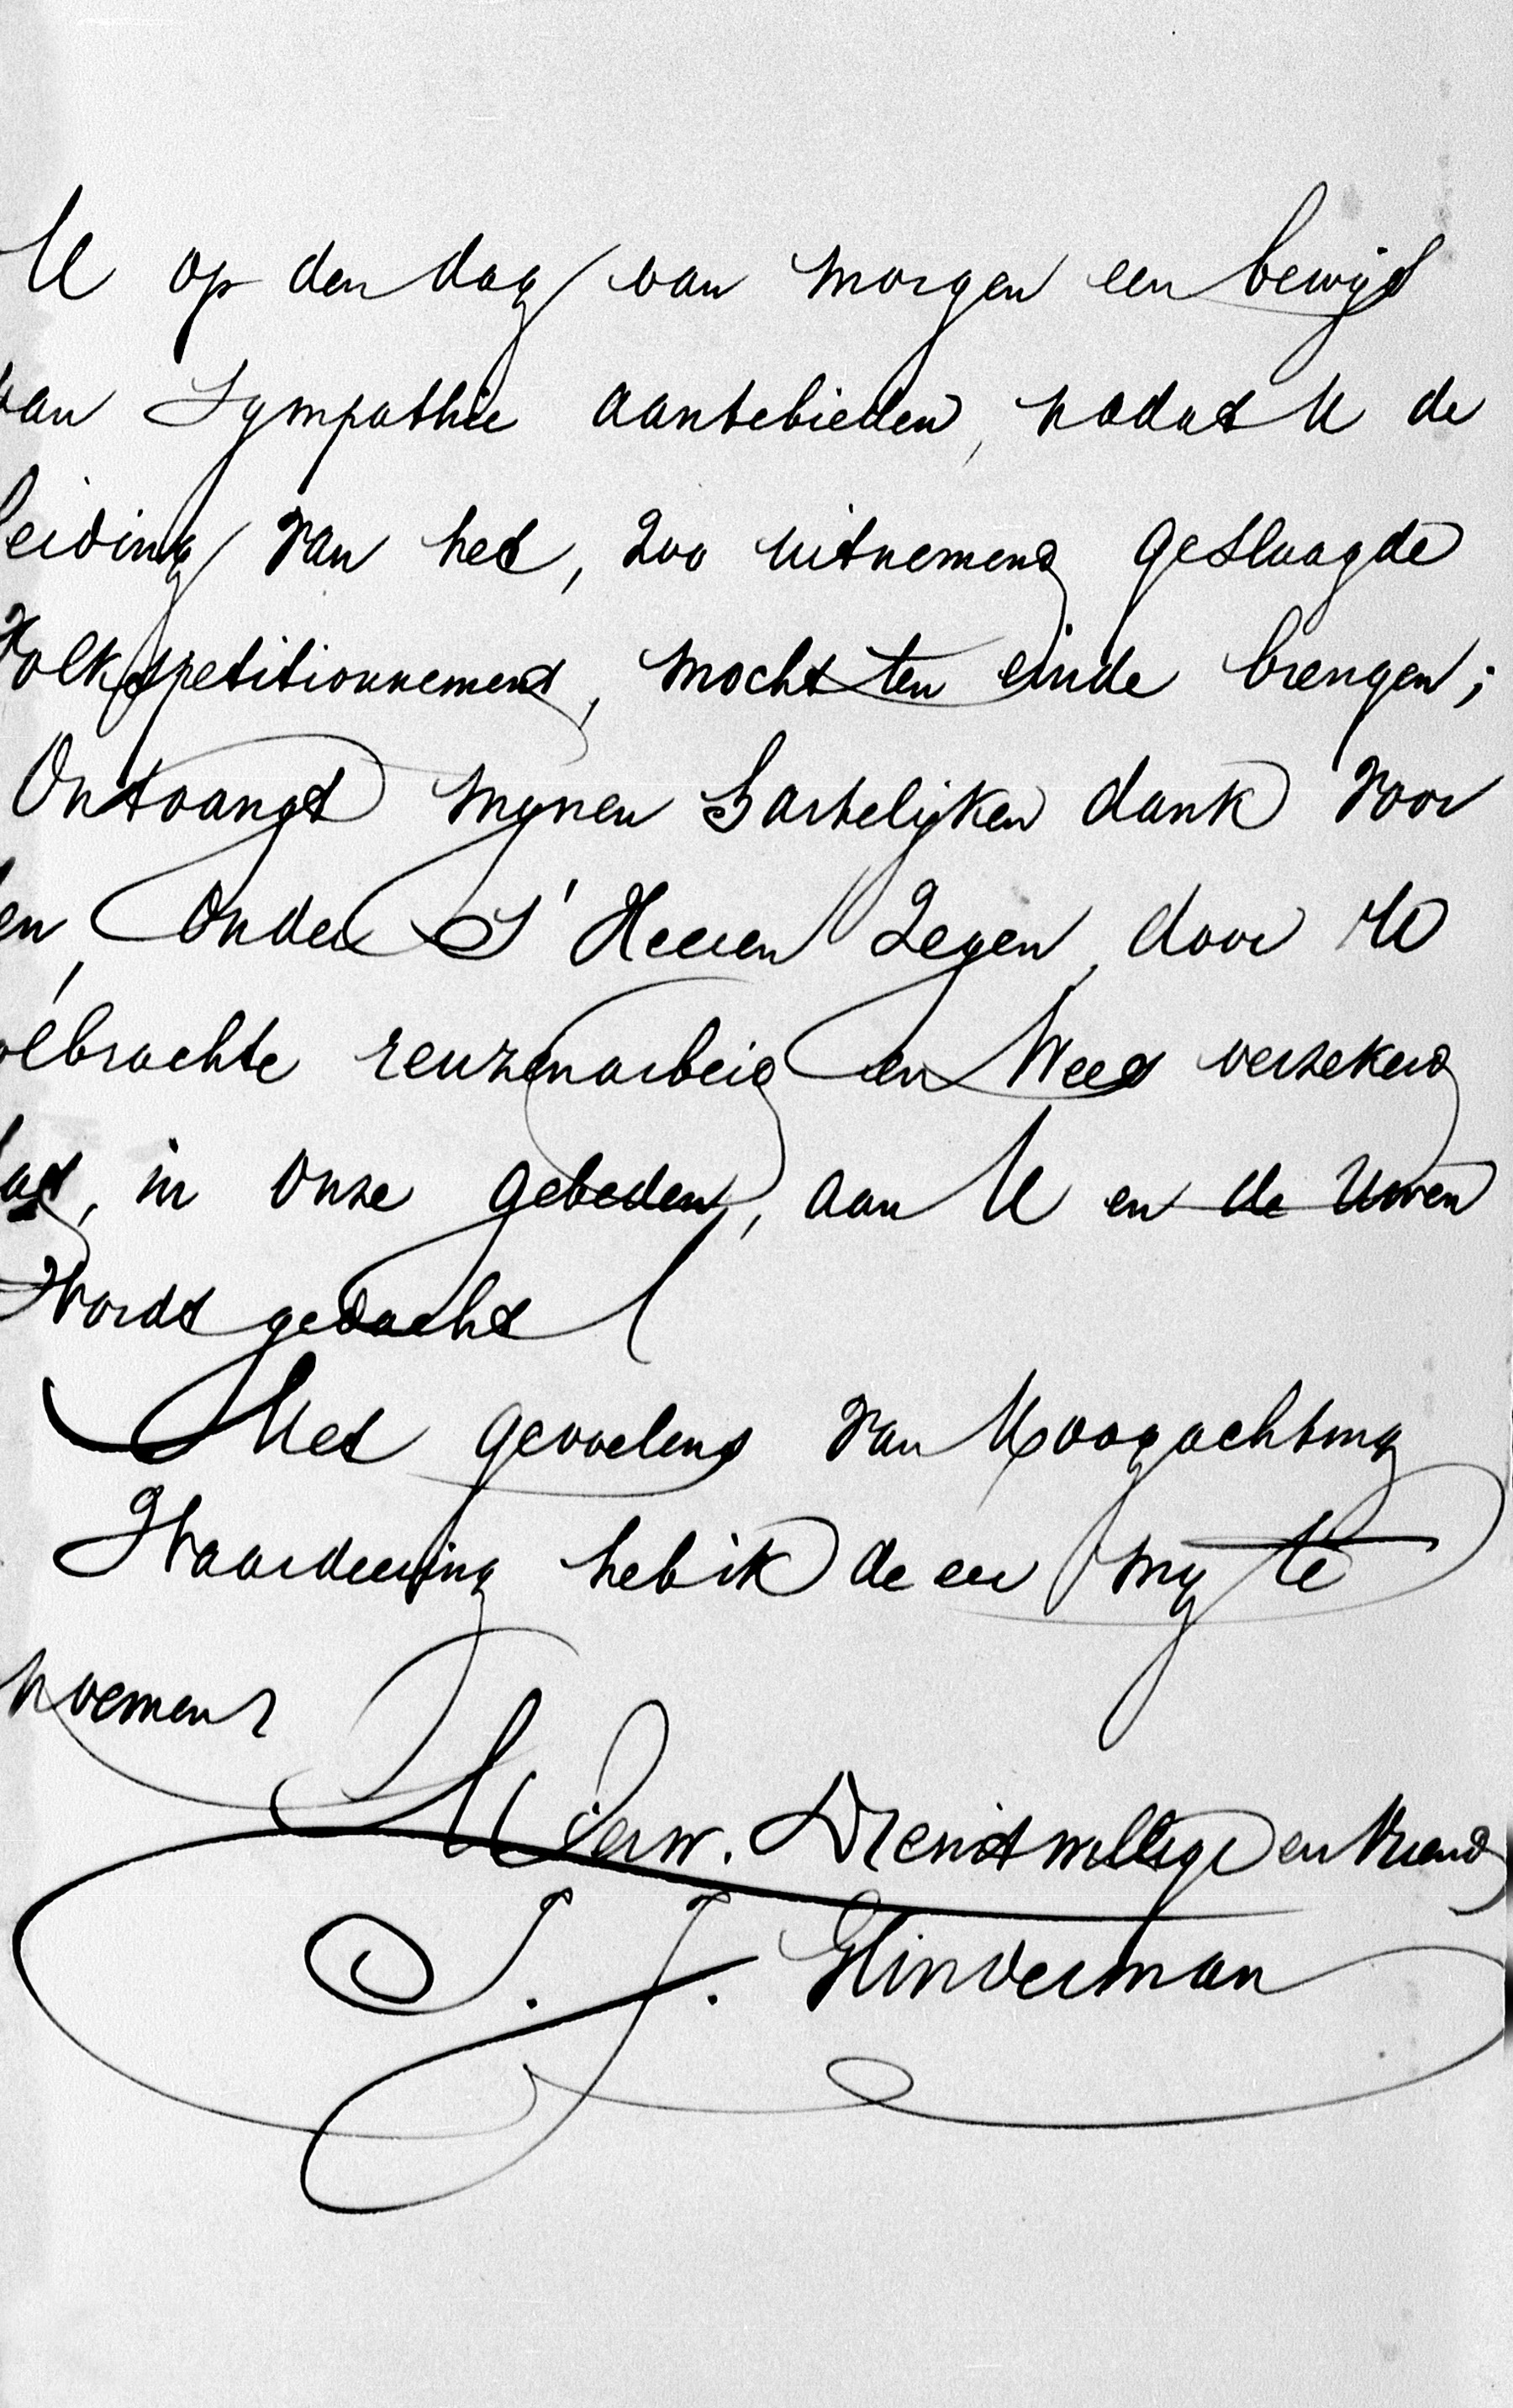 U op den dag van morgen een bewijs
van Sympathie aantebieden, nadat U de
leiding van het, zoo uitnemend geslaagde
Volkspetitionnement, mocht ten einde brengen;
Ontvangt mynen hartelijken dank voor
en, onder S' Heeren Zegen, door U
volbrachte reuzenarbeid en Wees verzekerd
dat, in onze gebeden, aan U en de Uwen
Wordt gedacht!
Met gevoelens van Hoogachting
Waardeering heb ik de eer my te
noemen
UEerw. Dienstwillige en Vriend
J. J. Glinderman